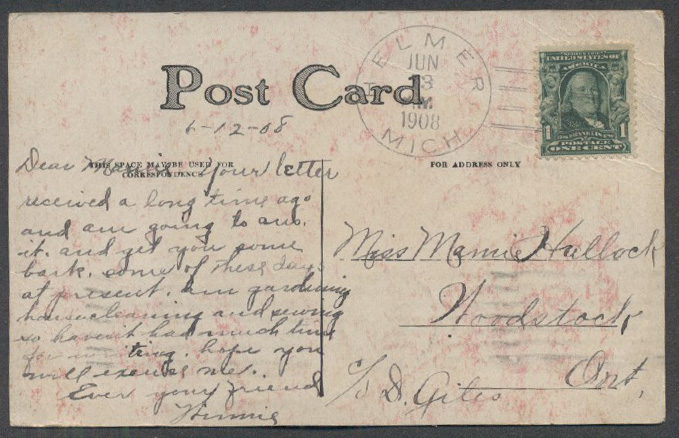 Post Card
ELMER
JUN
1908
MICH
UNITED STATES OF AMERICA
1 1
POSTAGE
ONE CENT
6-12-08
THIS SPACE MAY BE USED FOR
CORRESPONDENCE
FOR ADDRESS ONLY
Dear your letter
received a long time ago
and am going to ans.
it. and get you some
back. some of these days
at present. am gardening
housecleaning and sewing
so haven't had much time
for hope you
will excuse me..
Ever your friend
Winnie
Miss Mamie Hallock
Woodstock
Ont.
c/o D. Giles